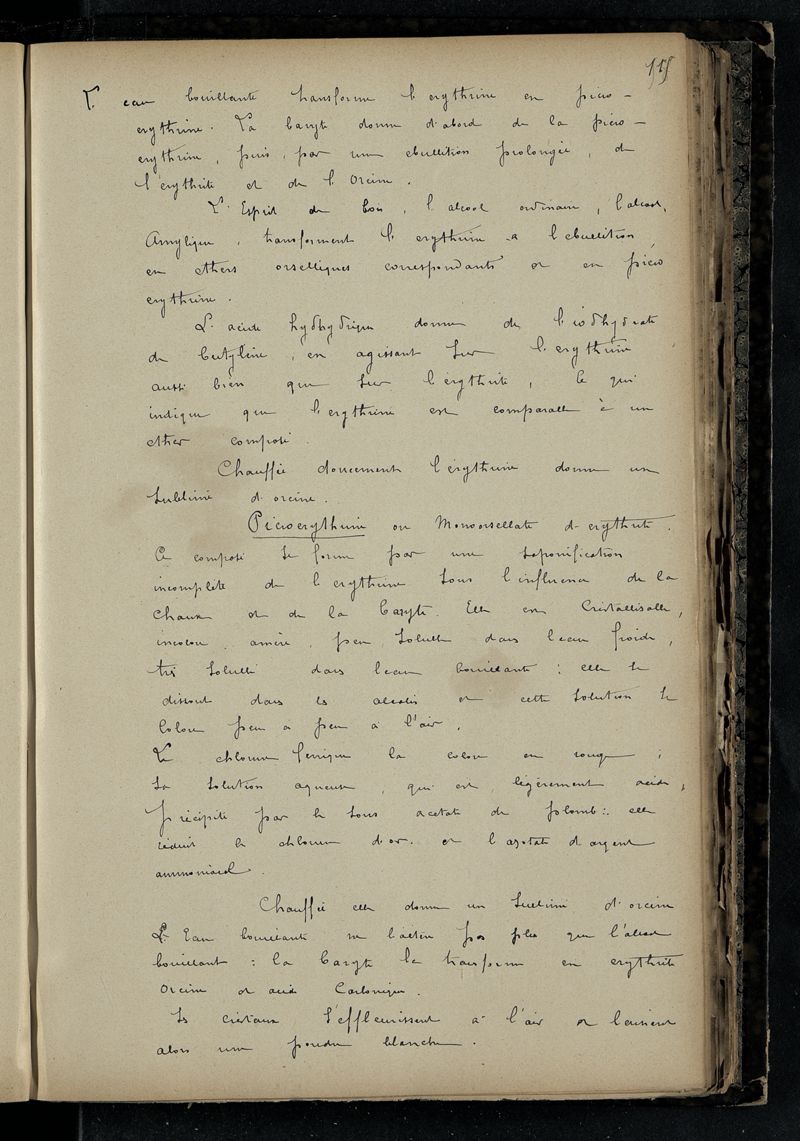 L'eau bouillante transforme l'erythrine en picro-
erythrine. La baryte donne d'abord de la picro-
erythrine, puis, par un ebullition prolongée, de
l'érythrite et de l'Orcine.
L'Esprit de bois, l'alcool ordinaire, l'alcool,
Amylique, transforment l'erythrine a l'ebullition,
en ethers orselliques correspondants et en picro
erythrine.
L'acide donne de l'iodhydrate
de butylène, en agissant sur l'erythrine
aussi bien que sur l'érythrite, ce qui
indique que l'erythrine est comparable à un
ether composé.
Chauffée doucement l'érythrine donne un
sublimé d'orcine.
Picroerythrine ou Monoorsellate d'erythrite.
Ce composé se forme par une saponification
incomplète de l'erythrine sous l'influence de la
Chaux et de la baryte. Elle est Cristallisable,
incolore, amère, peu soluble dans l'eau froide,
très soluble dans l'eau bouillante: elle se
dissout dans les alcalis et cette solution se
colore peu a peu a l'air.
Le chlorure ferrique la colore en rouge;
sa solution aqueuse, qui est légèrement acide,
précipite par le sous acetate de plomb: elle
réduit le chlorure d'or et l'azotate d'argent
ammoniacal.
Chauffée elle donne un sublimé d'orcine
L'Eau bouillante ne l'altère pas plus que l'alcool
bouillant: la Baryte la transforme en erythrite
Orcine et acide Carbonique.
Les cristaux s'effleurissent a l'air et laissent
alors une poudre blanche.